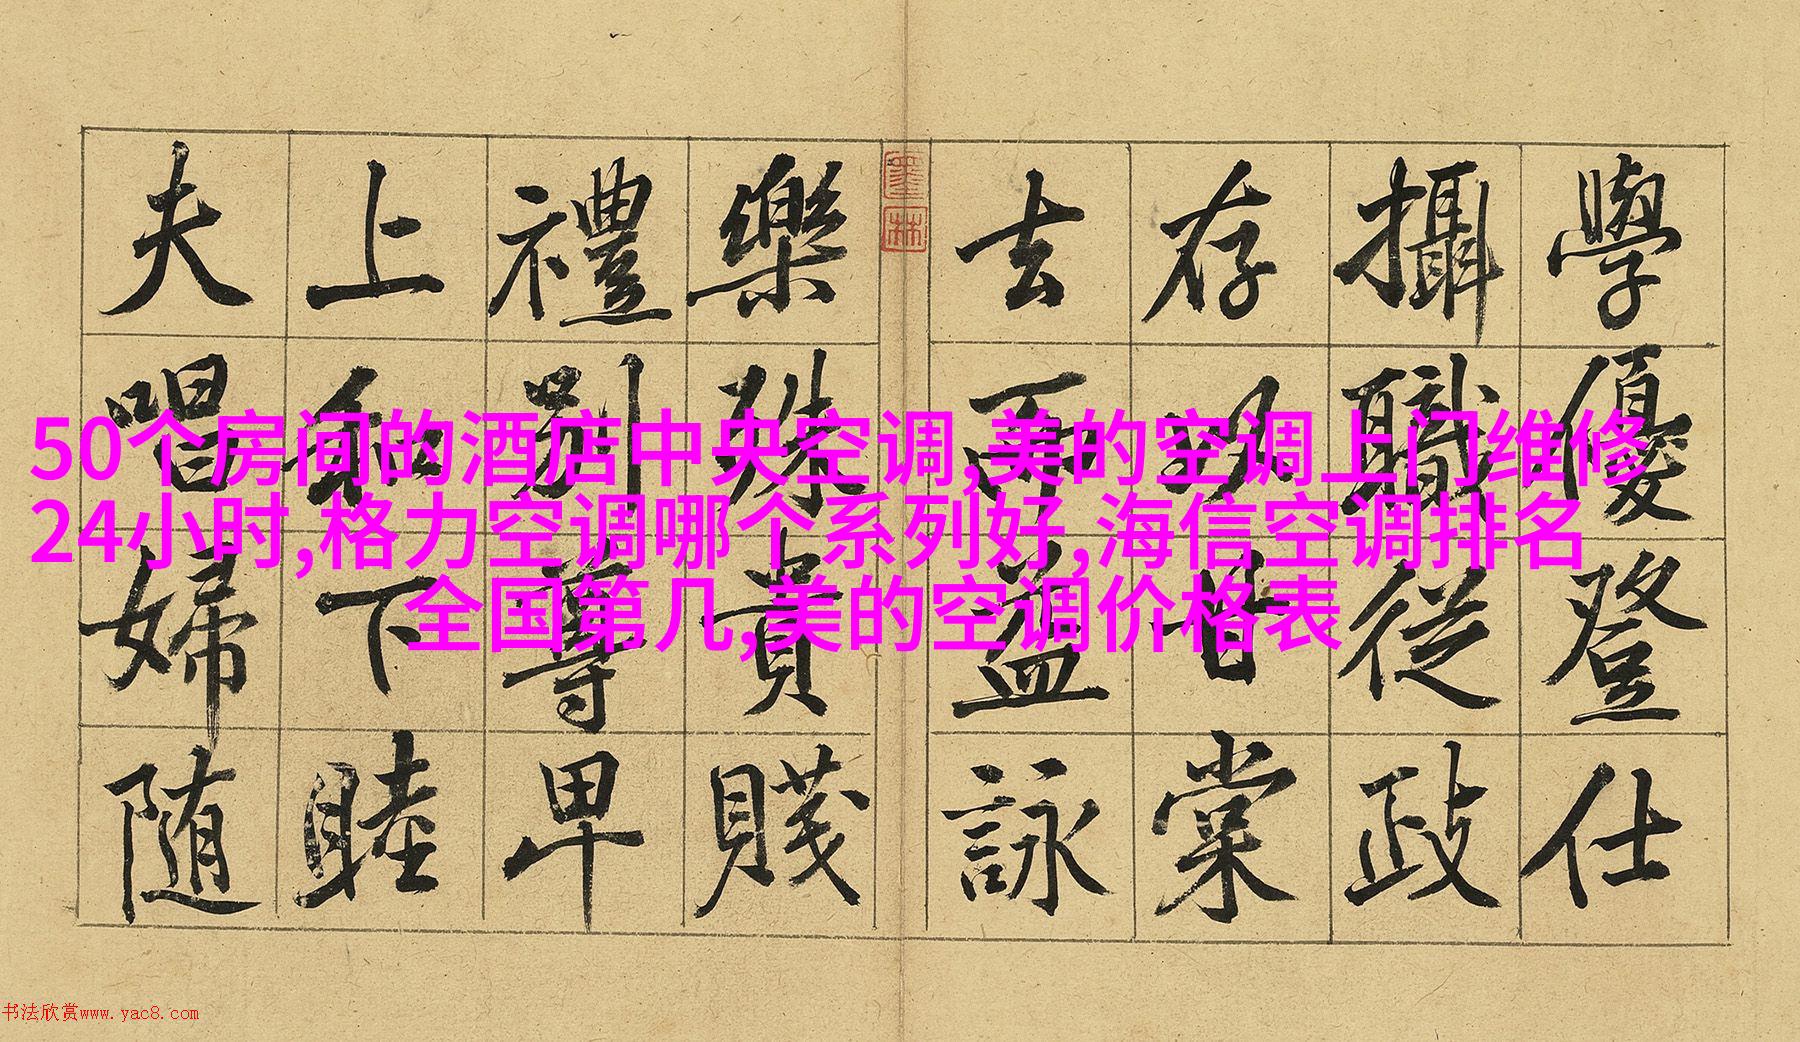 50个房间的酒店中央空调,美的空调上门维修
24小时,格力空调哪个系列好,海信空调排名
全国第几,美的空调价格表
學優登仕
攝職從政
存以甘棠
去而益詠
樂殊貴賤
禮別尊卑
上和下睦
夫唱婦随
墨林
书法欣赏www.yac8.com